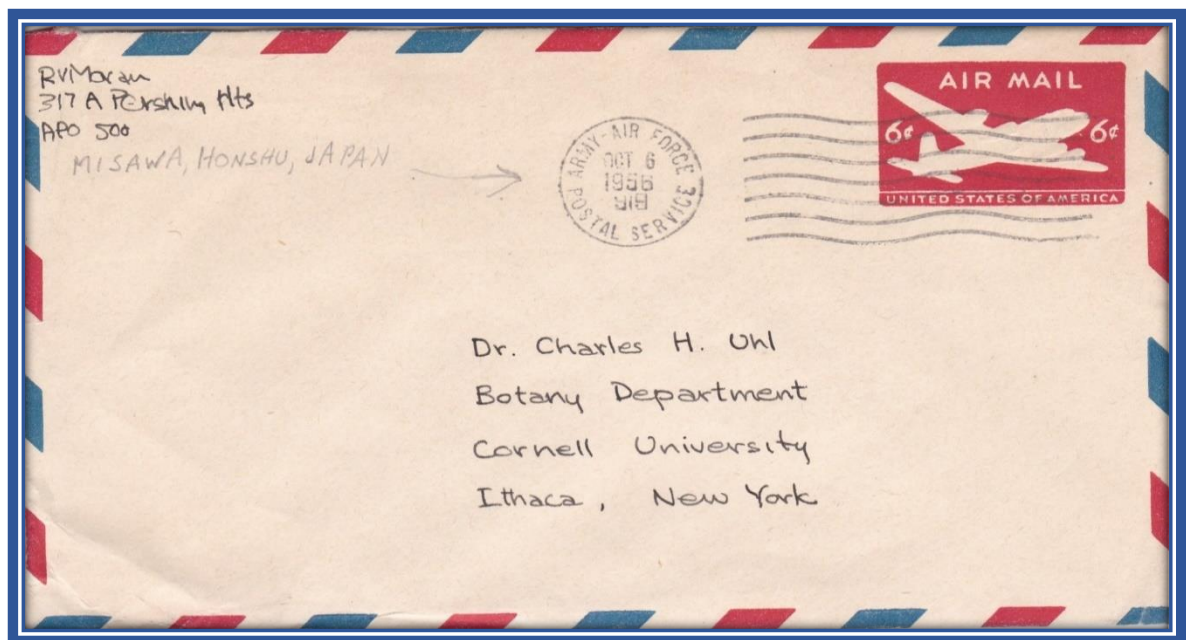 RVMoran
317 A Pershing Hts
APO 500
MISAWA, HONSHU, JAPAN
ARMY-AIR FORCE
POSTAL SERVICE
OCT 6
1956
AIR MAIL
6¢ 6¢
UNITED STATES OF AMERICA
Dr. Charles H. Uhl
Botany Department
Cornell University
Ithaca, New York